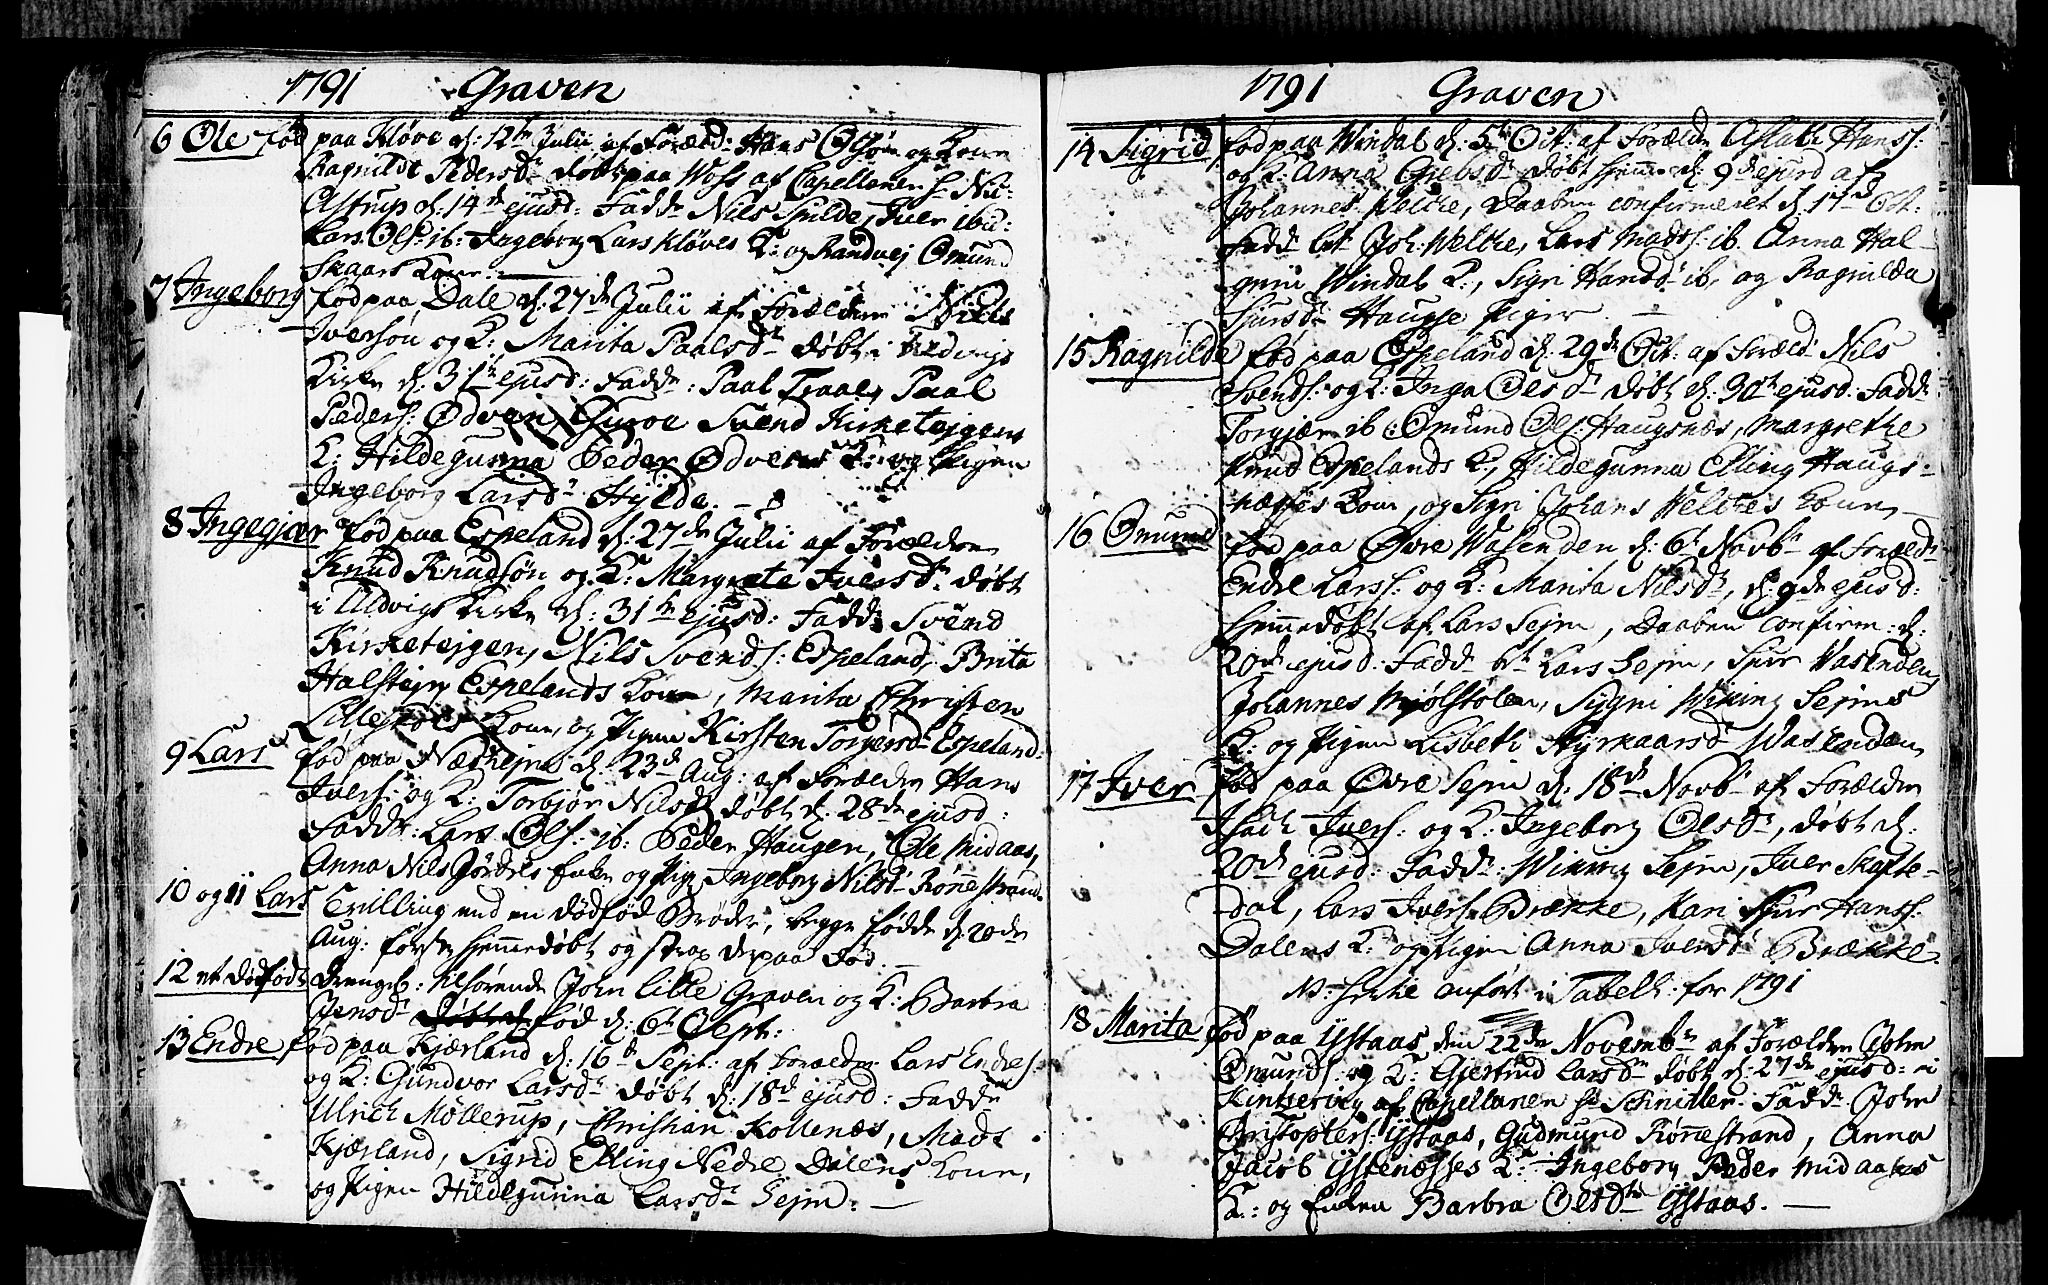 1791 Graven
6 Ole fød paa Kløve d: 12te Julii af Foræld: Hans Olsøn og Kone
Ragnilde Pedersdr døbt paa Woss af Capellanen Hr Nic:
Astrup d: 14de ejusd: Faddr Nils Spilde, Iver ibid:
Lars Ols: ib: Ingeborg Lars Kløves K: og Randvej Omund
Skaars Kone. —
7 Ingeborg fød paa Dale d: 27de Julii af Forældrene Niels
Iversøn og K: Marita Paalsdr døbt i Uldvigs
Kirke d: 31te ejusd: Faddr: Paal Traae, Paal
Peders: Ødven, Guroe Svend Kirketejgens
K: Hildegunna Peder Ødvens K: og Pigen
Ingeborg Larsdr Hylde. —
8 Ingegjær fød paa Espeland d: 27de Julii af Forældrene
Knud Knudsøn og K: Margrete Iversdr døbt
i Uldvigs Kirke d: 31te ejusd: Faddr Svend
Kirketejgen, Nils Svends: Espeland, Brita
Halstejn Espelands Kone, Marita Christen
Lillestøls Kone, og Pigen Kirsten Torgersdr Espeland:
9 Lars fød paa Næshejm d: 23de Aug: af Forældre Hans
Ivers: og K: Torbjør Nilsdr døbt d: 28de ejusd:
Faddr: Lars Ols: ib: Peder Haugen, Ole Midaas,
Anna Nils Jørdres Enke og Pig: Ingeborg Nilsdr Rønnestrand.
10 og 11 Lars Tvilling med en dødfød Broder, begge fødde d: 20de
Aug: første hjemmedøbt og strax derpaa død. —
12 et dødfødt Drengeb: tilhørende John Lille Graven og K: Barbra
Jensdr fød d: 6te Sept:
13 Endre fød paa Kjærland d: 16de Sept: af Forældre Lars Endres:
og K: Gundvor Larsdr døbt d: 18de ejusd: Faddr
Ulrich Møllerup, Christian Kollenæs, Mads
Kjærland, Sigrid Elling Nedre Dalens Kone,
og Pigen Hildegunna Larsdr Sejm. —
1791 Graven
14 Sigrid fød paa Windal d: 5te Oct: af Forældre Aslak Hanss:
og K: Anna Grebsdr døbt hjemme d: 9de ejusd af
Johannes Weltie, Daaben confirmeret d: 17de Oct:
Faddr bt Joh: Weltie, Lars Madss: ib. Anna Hal-
grim Windals K:, Sigri Hansdr ib, og Ragnilda
Sjursdr Haugse Piger. —
15 Ragnilde fød paa Espeland d: 29de Oct: af Foræld Nils
Svends: og K: Inga Olsdr døbt d: 30te ejusd: Faddr
Torgjær ib Omund Ols: Haugsnæs, Margrethe
Knud Espelands K:, Hildegunna Elling Haugs-
næsses Kone, og Sigri Johans Welties Kone, —
16 Omund fød paa Øvre Wasenden d: 6te Novbr af Foræld:
Endre Larss: og K: Marita Nilsdr, d: 9de ejusd:
hjemmedøbt af Lars Sejm, Daaben confirm: d:
20de ejusd: Faddr bt Lars Sejm, Sjur Wasenden,
Johannes Mjølstølen, Sygni Wiking Sejms
K: og Pigen Lisbeth Styrkaarsdr Wasenden,
17 Iver fød paa Øvre Sejm d: 18de Novbr af Forældre
Isach Ivers: og K: Ingeborg Olsdr, døbt d:
20de ejusd: Faddr: Wiking Sejm, Iver Skafte-
dal, Lars Ivers: Brække, Kari Sjur Hanss:
Dalens K: og Pigen Anna Iversdr Brække.
N: hertil anført i Tabell: for 1791
18 Marita fød paa Ystaas den 22de Novembr af Forældre John
Omunds: og K: Gjertrud Larsdr døbt d: 27de ejusd: i
Kintzervig af Capellanen Hr Schnitler. Faddr John
Christophers: Ystaas, Gudmund Rønnestrand, Anna
Jacob Ystenæsses K: Ingeborg Peder Midaases
K: og Enken Barbra Olsdtr Ystaas. —